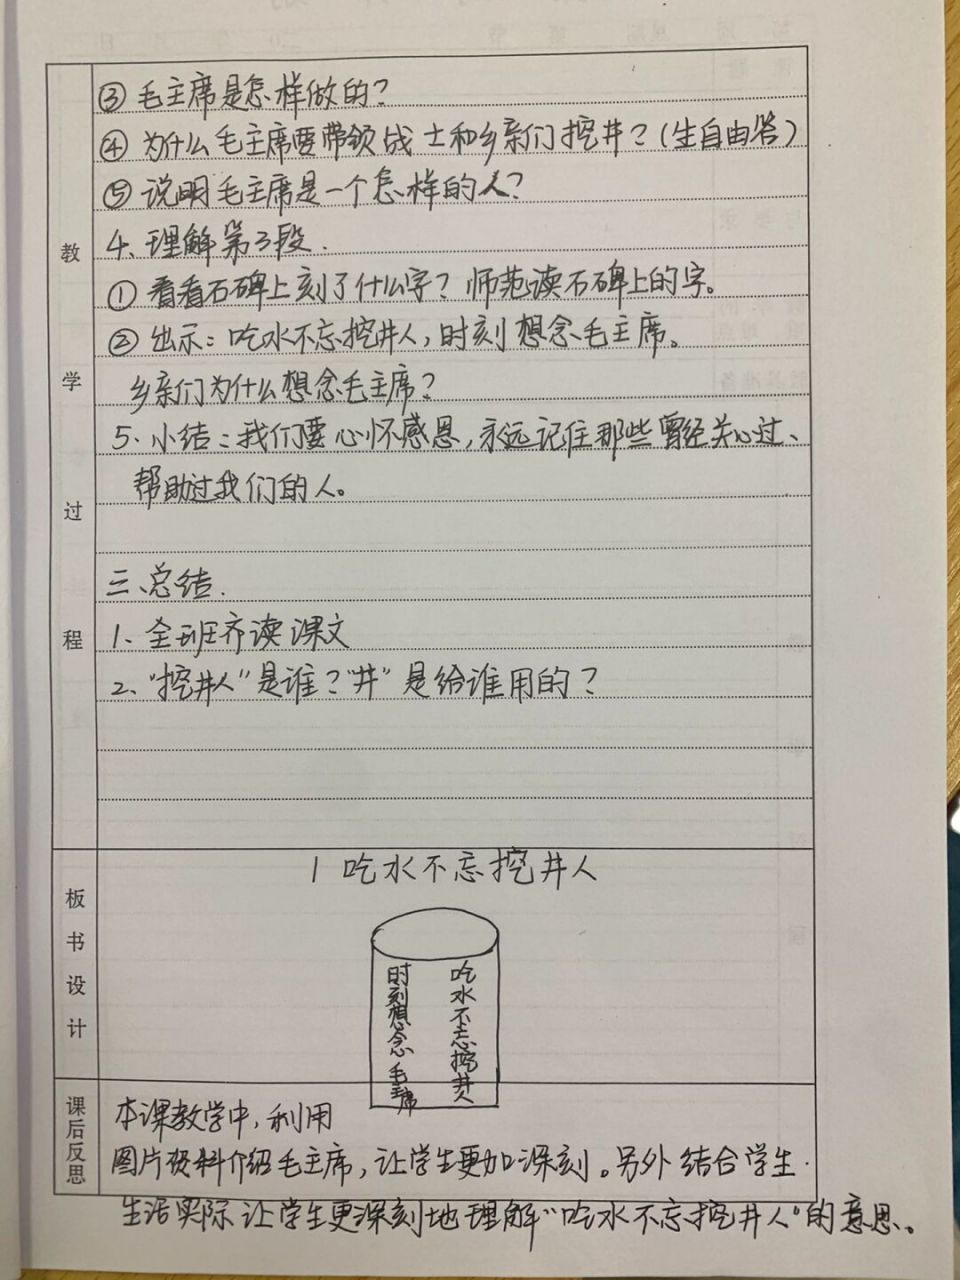 教学过程
③毛主席是怎样做的?
④为什么毛主席要带领战士和乡亲们挖井?(生自由答)
⑤说明毛主席是一个怎样的人?
4、理解第3段.
①看看石碑上刻了什么字?师范读石碑上的字。
②出示:吃水不忘挖井人,时刻想念毛主席。
乡亲们为什么想念毛主席?
5、小结:我们要心怀感恩,永远记住那些曾经关心过、
帮助过我们的人。
三、总结.
1、全班齐读课文
2、“挖井人”是谁?“井”是给谁用的?
板书设计
1 吃水不忘挖井人
吃水不忘挖井人
时刻想念毛主席
课后反思
本课教学中,利用
图片资料介绍毛主席,让学生更加深刻。另外结合学生
生活实际让学生更深刻地理解“吃水不忘挖井人”的意思。